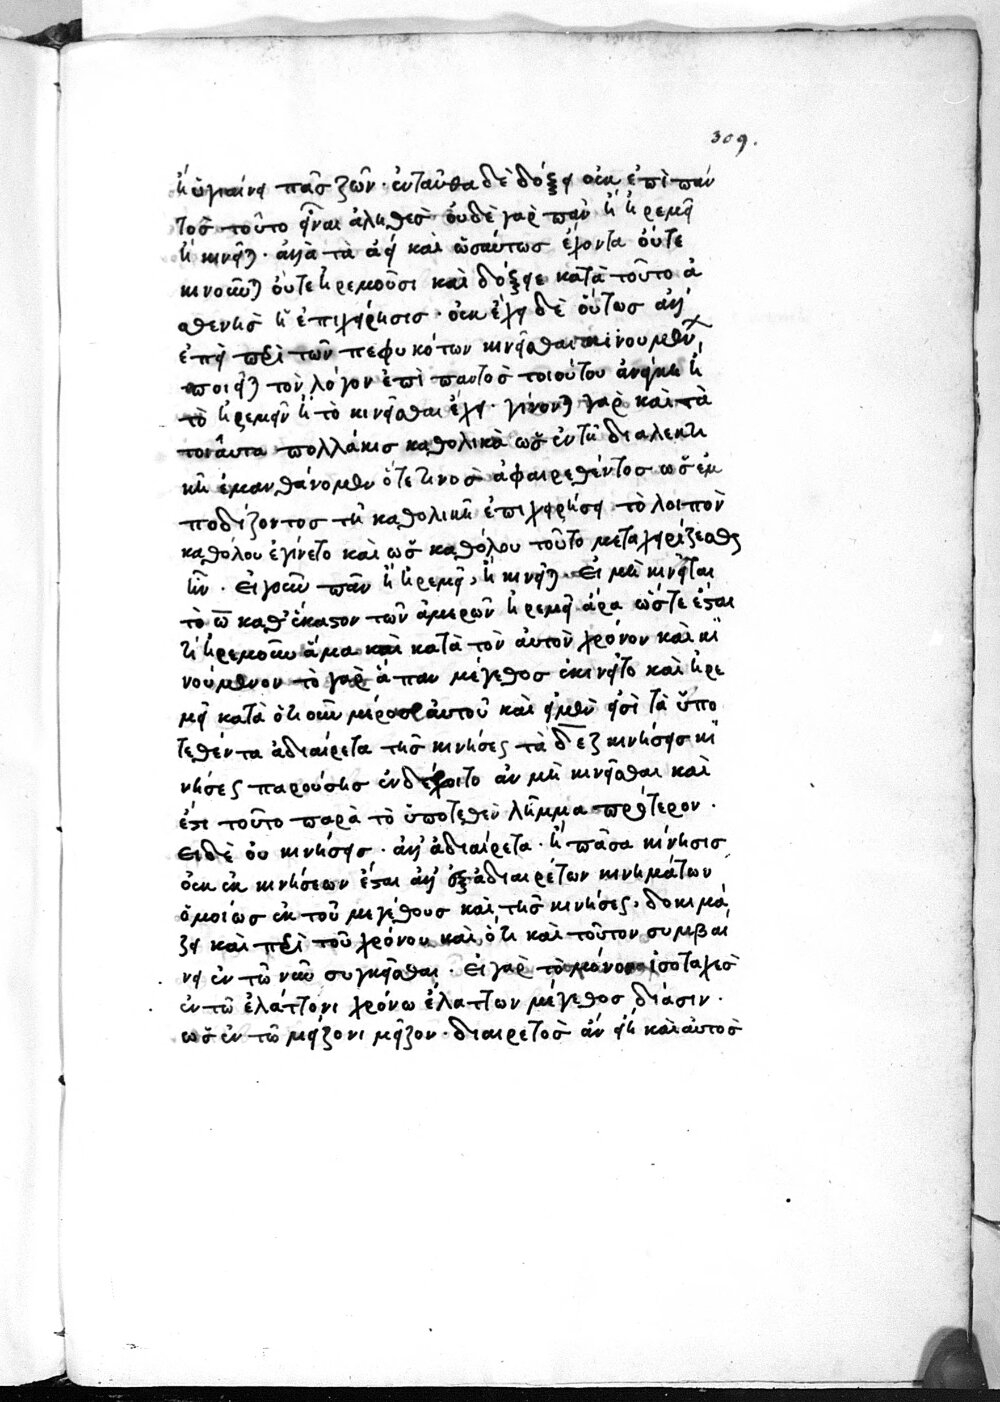 309.
ἢ ὑγιαίνει πᾶν ζῶν · ἐνταῦθα δὲ δόξει οὐκ ἐπὶ παν
τὸς τοῦτο εἶναι ἀληθὲς οὐδὲ γὰρ πᾶν ἢ ἠρεμεῖ
ἢ κινεῖται · ἀλλὰ τὰ ἀεὶ καὶ ὡσαύτως ἔχοντα οὔτε
κινοῦνται οὔτε ἠρεμοῦσι καὶ δόξειε κατὰ τοῦτο ἀ
σθενὴς ἡ ἐπιχείρησις · οὐκ ἔχει δὲ οὕτως ἀλλ'
ἐπεὶ περὶ τῶν πεφυκότων κινεῖσθαι κινουμένων
ποιεῖται τὸν λόγον ἐπὶ παντὸς τοιούτου ἀνάγκη ἢ
τὸ ἠρεμεῖν ἢ τὸ κινεῖσθαι ἔχει · γίνονται γὰρ καὶ τὰ
τοιαῦτα πολλάκις καθολικὰ ὡς ἐν τῇ διαλεκτι
κῇ ἐμανθάνομεν ὅτε τινὸς ἀφαιρεθέντος ὡς ἐμ
ποδίζοντος τῇ καθολικῇ ἐπιχειρήσει τὸ λοιπὸν
καθόλου ἐγίνετο καὶ ὡς καθόλου τοῦτο μεταχειρίζεσθαι
ἦν · Εἰ γοῦν πᾶν ἢ ἠρεμεῖ, ἢ κινεῖται · Εἰ μὴ κινεῖται
τὸ ὅλον καθ' ἕκαστον τῶν ἀμερῶν ἠρεμεῖ ἄρα ὥστε ἔσται
τι ἠρεμοῦν ἅμα καὶ κατὰ τὸν αὐτὸν χρόνον καὶ κι
νούμενον τὸ γὰρ ἅπαν μέγεθος ἐκινεῖτο καὶ ἠρέ
μει κατὰ ὁτιοῦν μέρος αὐτοῦ καὶ εἰ μὲν εἰσὶ τὰ ὑπο
τεθέντα ἀδιαίρετα τῆς κινήσεως τὰ δ ε ζ κινήσεις κι
νήσεως παρούσης ἐνδέχοιτο ἂν μὴ κινεῖσθαι καὶ
ἔστι τοῦτο παρὰ τὸ ὑποτεθὲν λῆμμα πρότερον ·
Εἰ δὲ οὐ κινήσεις · ἀλλ' ἀδιαίρετα · ἡ πᾶσα κίνησις
οὐκ ἐκ κινήσεων ἔσται ἀλλ' ἐξ ἀδιαιρέτων κινημάτων
ὁμοίως ἐκ τοῦ μεγέθους καὶ τῆς κινήσεως, δοκιμά
ζει καὶ περὶ τοῦ χρόνου καὶ ὅτι καὶ τοῦτον συμβαί
νει ἐν τῶν νῦν συγκεῖσθαι · Εἰ γὰρ τὸ μόνον ἰσοταχὲς
ἐν τῷ ἐλάττονι χρόνῳ ἔλαττον μέγεθος δίεισιν ·
ὡς ἐν τῷ μείζονι μεῖζον · διαιρετὸς ἂν εἴη καὶ αὐτὸς